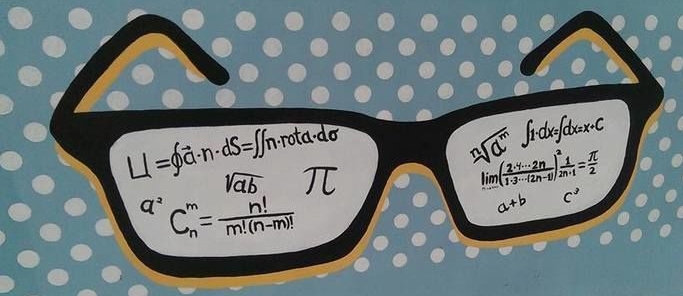 Ц=∮a⃗·n·dS=∬n·rota·dσ
√ab π
a² Cₙᵐ= n!/m!(n-m)!
ⁿ√aᵐ ∫1·dx=∫dx=x+C
lim(2·4···2n/1·3···(2n-1))² 1/2n+1=π/2
a+b c³